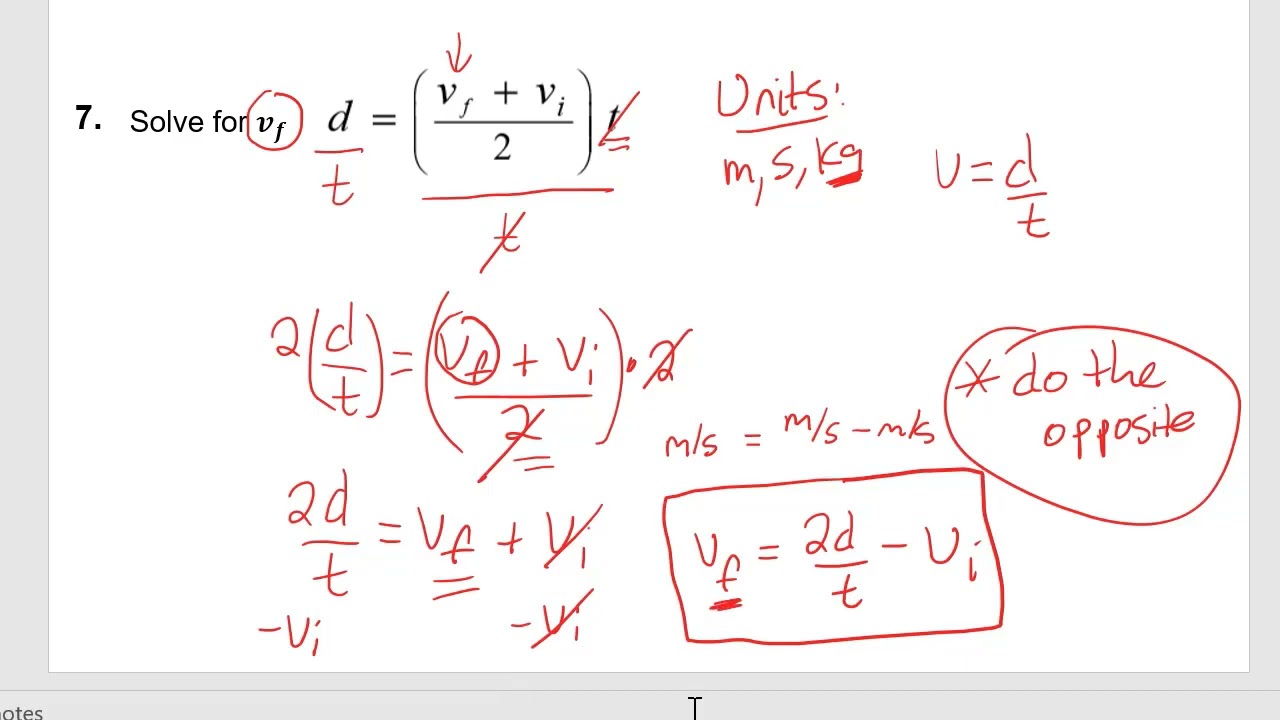 7. Solve for v_f d = ( (v_f + v_i) / 2 ) t
t
t
Units:
m, s, kg
v = d / t
2 ( d / t ) = ( (v_f + v_i) / 2 ) · 2
* do the
opposite
m/s = m/s - m/s
2d / t = v_f + v_i
-v_i -v_i
v_f = 2d / t - v_i
notes